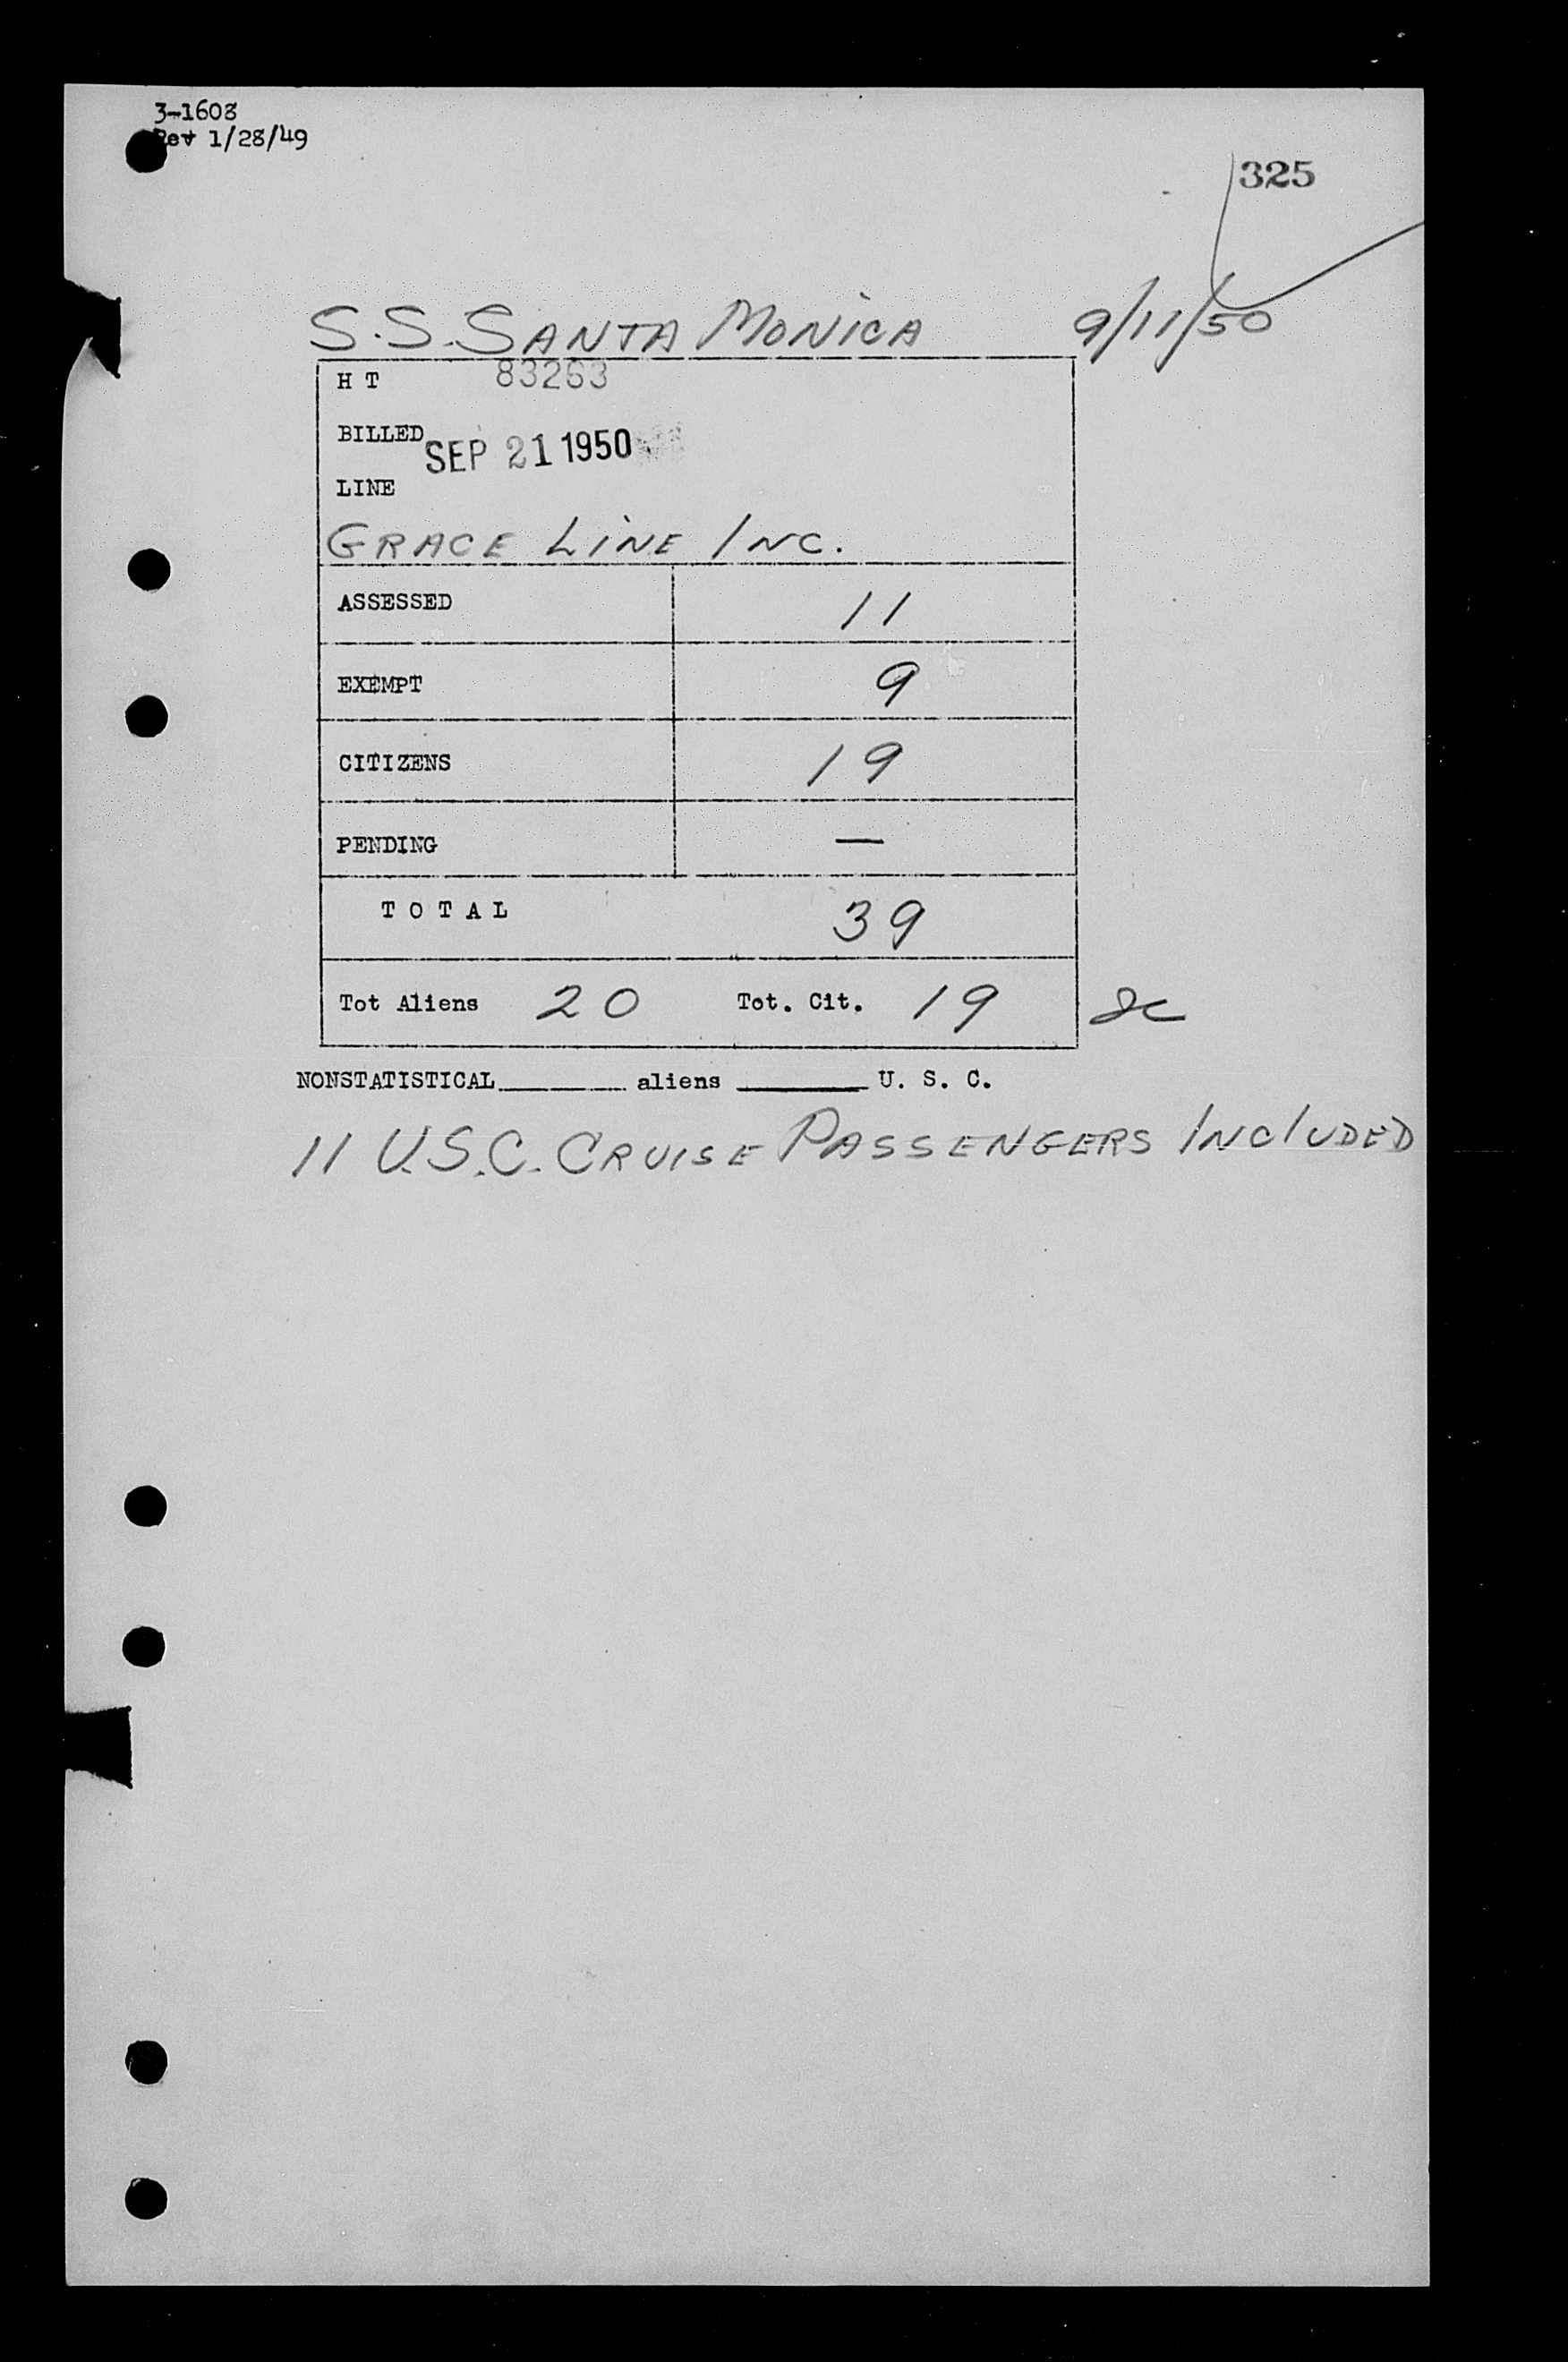 3-1608
Rev 1/28/49
325
S.S. SANTA MONICA 9/11/50
H T 83263
BILLED SEP 21 1950
LINE
GRACE LINE INC.
ASSESSED 11
EXEMPT 9
CITIZENS 19
PENDING —
T O T A L 39
Tot Aliens 20 Tot. Cit. 19
NONSTATISTICAL________ aliens ________ U. S. C.
11 U.S.C. CRUISE PASSENGERS INCLUDED